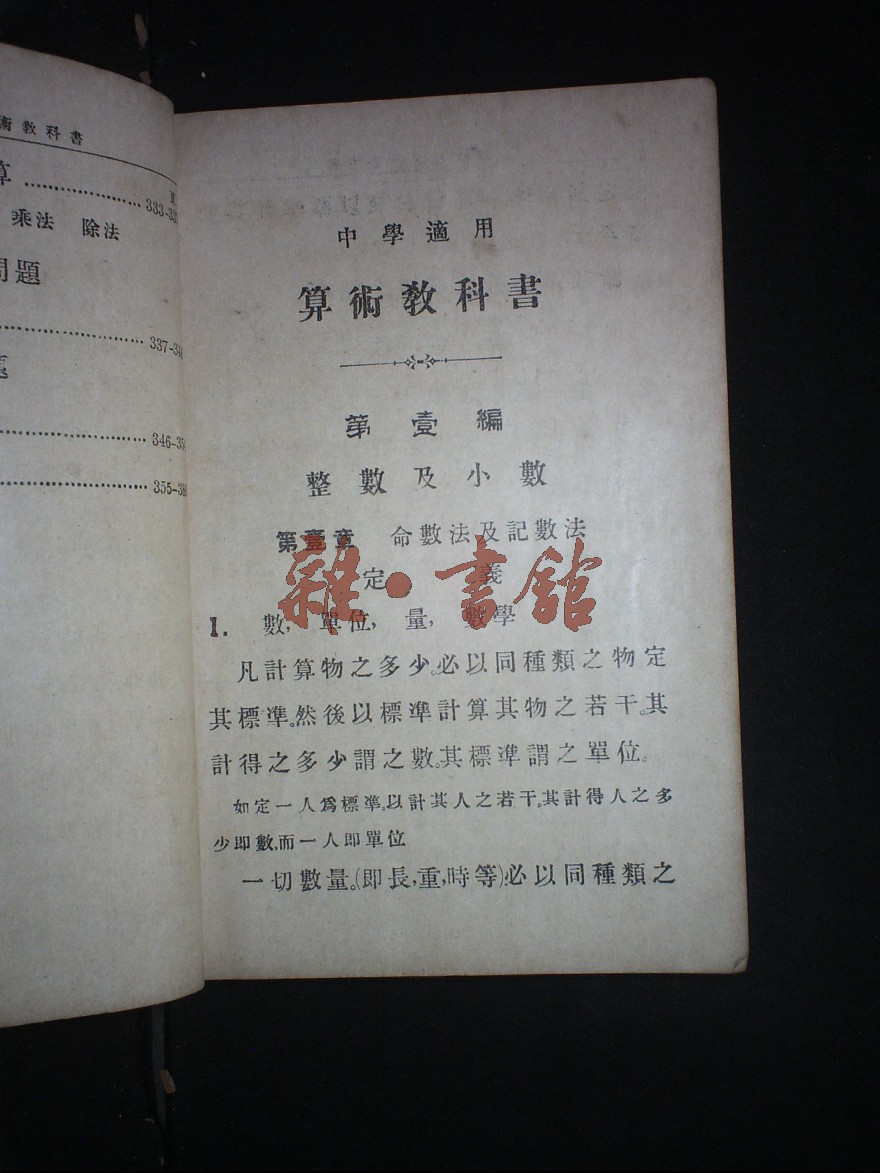 術教科書
算 ........ 333-33
頁
乘法 除法
問題
........ 337-34
........ 346-35
........ 355-38
中學適用
算術教科書
第壹編
整數及小數
第壹章 命數法及記數法
定義
1. 數, 單位, 量, 數學
凡計算物之多少。必以同種類之物定
其標準。然後以標準計算其物之若干。其
計得之多少謂之數。其標準謂之單位。
如定一人爲標準。以計其人之若干。其計得人之多
少即數。而一人即單位
一切數量。(即長,重,時等)必以同種類之
雜·書館